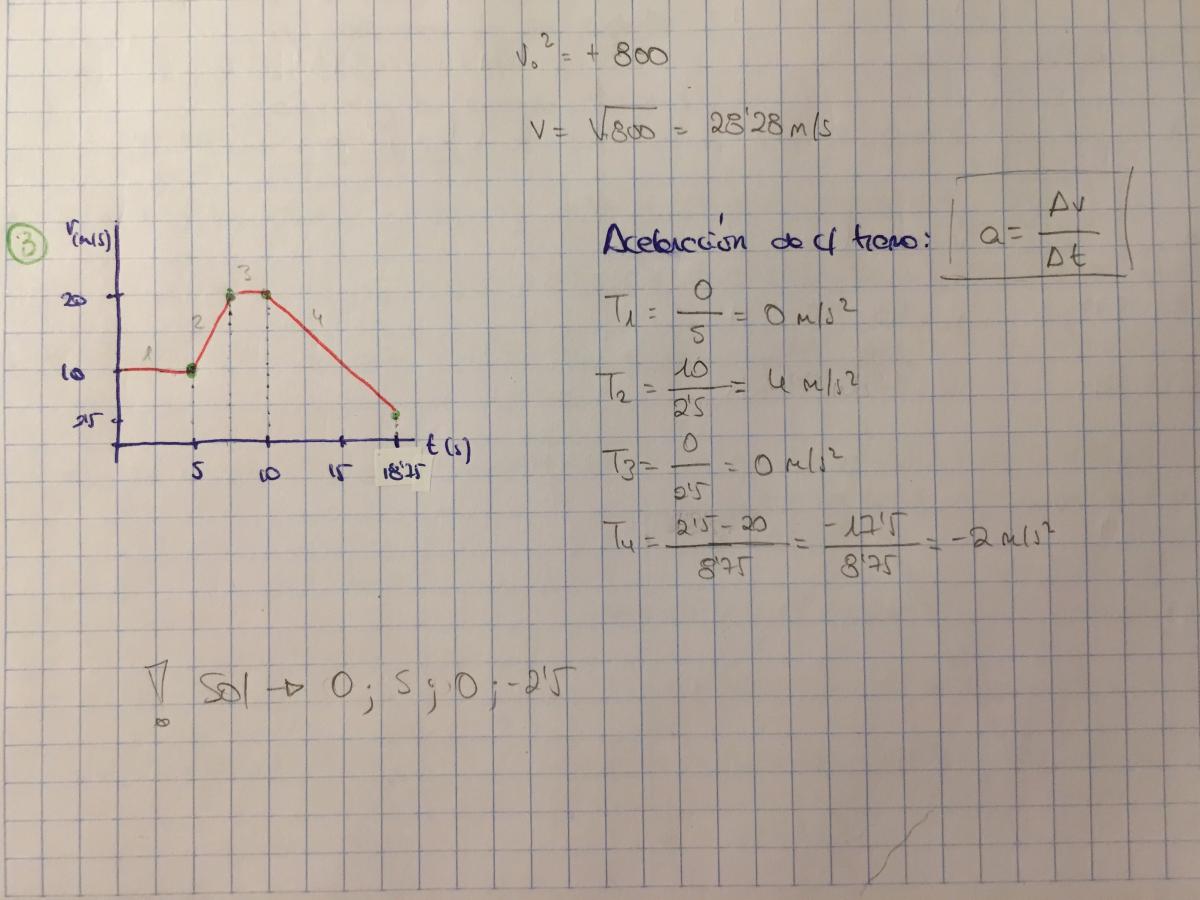 v₀² = + 800
v = √800 = 28'28 m/s
3
V(m/s)
20
10
2'5
1
2
3
4
5 10 15 18'75
t(s)
Aceleración de c/ tramo: a = Δv/Δt
T1 = 0/5 = 0 m/s²
T2 = 10/2'5 = 4 m/s²
T3 = 0/2'5 = 0 m/s²
T4 = 2'5-20/8'75 = -17'5/8'75 = -2 m/s²
! Sol → 0; 5; 0; -2'5